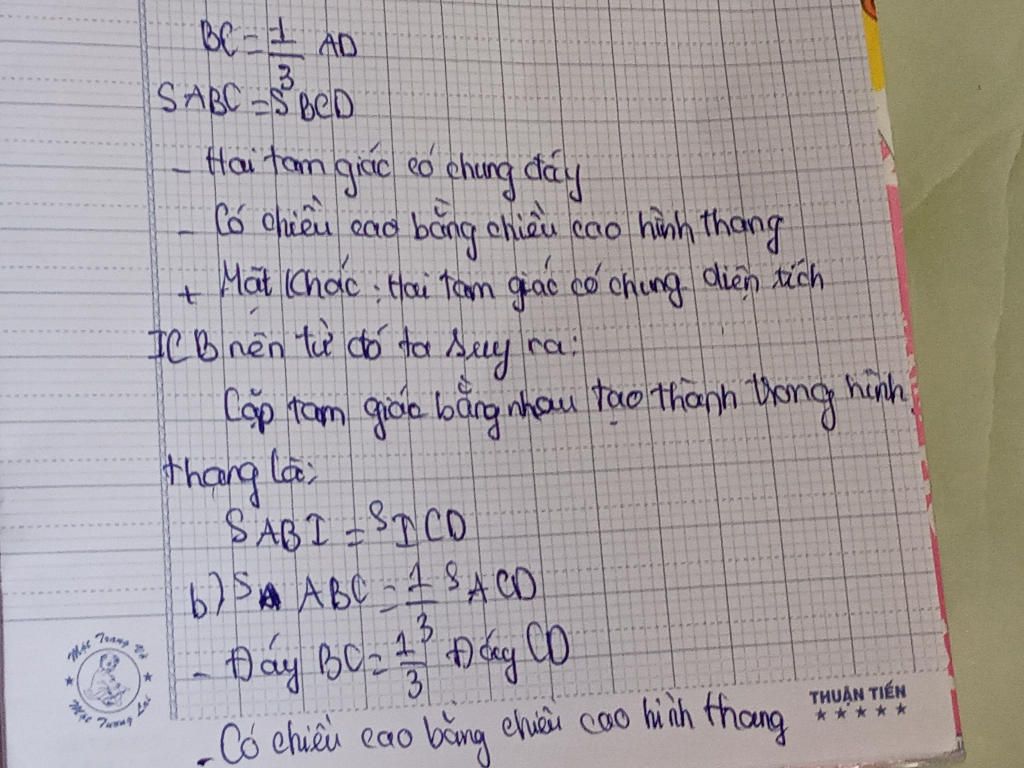 BC = 1/3 AD
SABC = SBCD
- Hai tam giác có chung đáy
- Có chiều cao bằng chiều cao hình thang
+ Mặt khác: Hai tam giác có chung diện tích
ICB nên từ đó ta suy ra:
Cặp tam giác bằng nhau tạo thành trong hình
thang là:
SABI = SICD
b) S ABC = 1/3 SACD
- Đáy BC = 1/3 Đáy CD
- Có chiều cao bằng chiều cao hình thang
THUẬN TIẾN